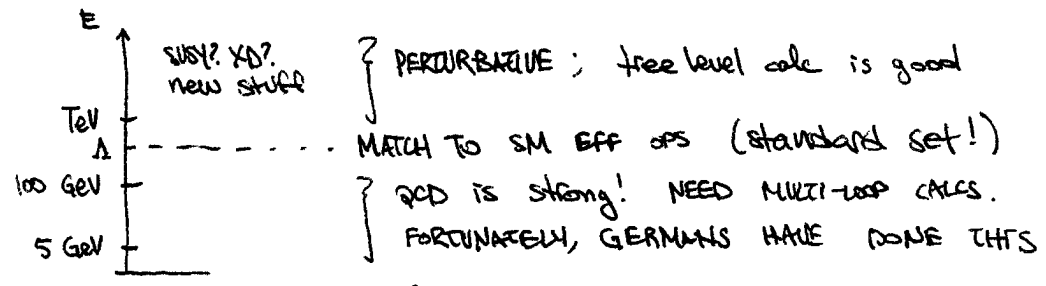 E
SUSY? XD?
new stuff
PERTURBATIVE ; tree level calc is good
TeV
Λ
MATCH TO SM EFF OPS (standard set!)
100 GeV
QCD is strong! NEED MULTI-LOOP CALCS.
5 GeV
FORTUNATELY, GERMANS HAVE DONE THIS